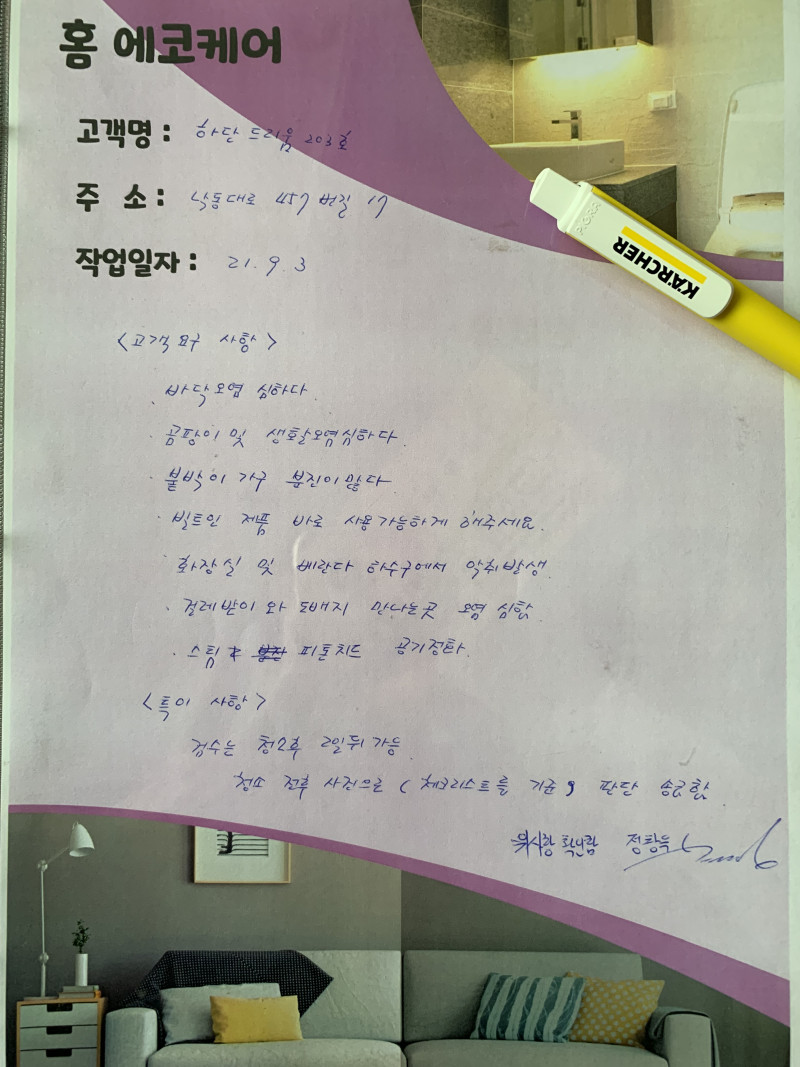 홈 에코케어
고객명 : 하단 드리움 203호
주 소 : 낙동대로 457번길 17
작업일자 : 21. 9. 3
PIGRA
KÄRCHER
<고객요구 사항>
· 바닥오염 심하다.
· 곰팡이 및 생활오염심하다.
· 붙박이 가구 분진이많다.
· 빌트인 제품 바로 사용가능하게 해주세요.
· 화장실 및 베란다 하수구에서 악취발생.
· 걸레받이와 도배지 만나는곳 오염 심함.
· 스팀 피톤치드 공기정화.
<특이 사항>
검수는 청소후 2일뒤 가능
청소 전후 사진으로 (체크리스트를 기준) 판단 송금함
위사항 확인함